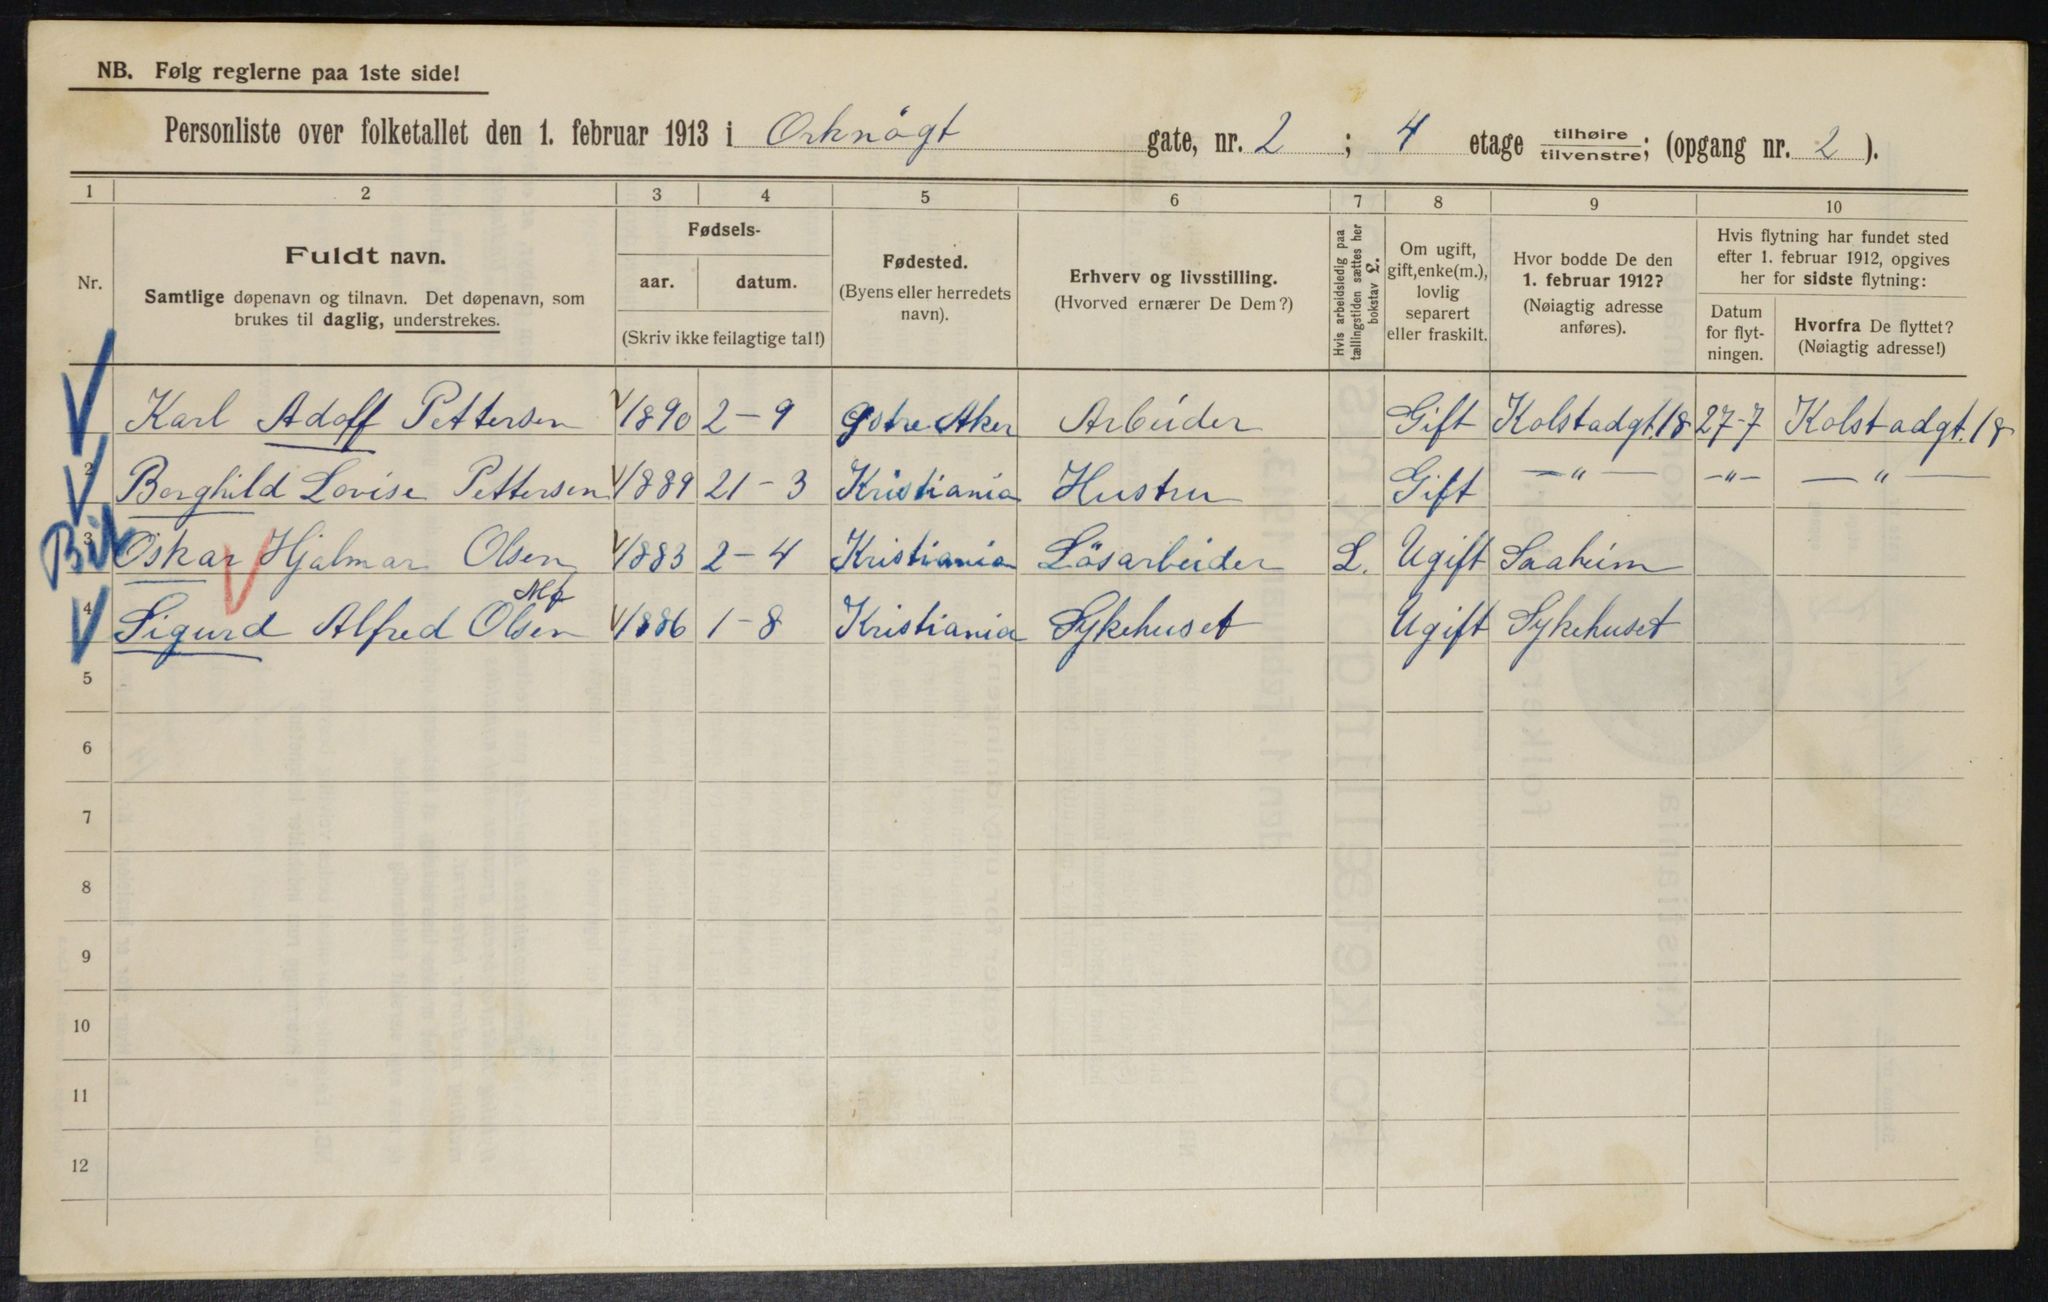 NB. Følg reglerne paa 1ste side!
Personliste over folketallet den 1. februar 1913 i Orknögt gate, nr. 2 ; 4 etage tilhøire/tilvenstre; (opgang nr. 2 ).
1 2 3 4 5 6 7 8 9 10
Nr.
Fuldt navn.
Samtlige døpenavn og tilnavn. Det døpenavn, som
brukes til daglig, understrekes.
Fødsels-
aar. datum.
(Skriv ikke feilagtige tal!)
Fødested.
(Byens eller herredets
navn).
Erhverv og livsstilling.
(Hvorved ernærer De Dem?)
Hvis arbeidsledig paa
tællingstiden sættes her
bokstav L.
Om ugift,
gift, enke(m.),
lovlig
separert
eller fraskilt.
Hvor bodde De den
1. februar 1912?
(Nøiagtig adresse
anføres).
Hvis flytning har fundet sted
efter 1. februar 1912, opgives
her for sidste flytning:
Datum
for flyt-
ningen.
Hvorfra De flyttet?
(Nøiagtig adresse!)
Karl Adolf Pettersen 1890 2-9 Østre Aker Arbeider Gift Kolstadgt. 18 27-7 Kolstadgt. 18
2 Borghild Lovise Pettersen 1889 21-3 Kristiania Hustru Gift —"— —"— —"—
3 Oskar Hjalmar Olsen 1883 2-4 Kristiania Lösarbeider L. Ugift Saaheim
4 Sigurd Alfred Olsen 1886 1-8 Kristiania Sykehuset Ugift Sykehuset
5
6
7
8
9
10
11
12